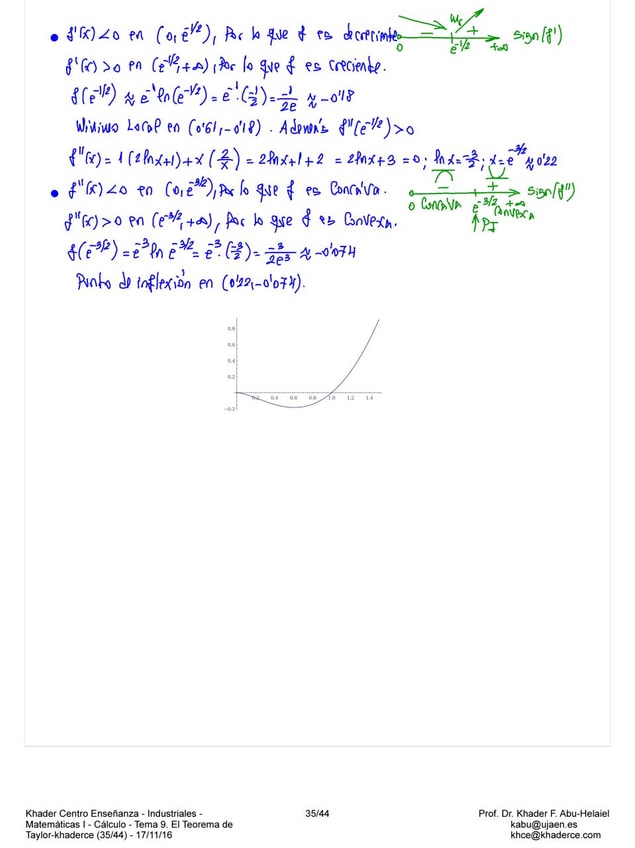 • f'(x)<0 en (0, e^{-1/2}), Por lo que f es decreciente.
0 − e^{-1/2} + +∞ sign(f')
f'(x)>0 en (e^{-1/2}, +∞), Por lo que f es creciente.
f(e^{-1/2}) ≈ e^{-1} ln(e^{-1/2}) = e^{-1}·(-1/2) = -1/2e ≈ -0'18
Mínimo Local en (0'61, -0'18). Además f''(e^{-1/2})>0
f''(x) = 1(2lnx+1)+x(2/x) = 2lnx+1+2 = 2lnx+3 = 0; lnx = -3/2; x = e^{-3/2} ≈ 0'22
• f''(x)<0 en (0, e^{-3/2}), Por lo que f es Concáva.
− + sign(f'')
0 CONCAVA e^{-3/2} +∞ CONVEXA
↑ PI
f''(x)>0 en (e^{-3/2}, +∞), Por lo que f es Convexa.
f(e^{-3/2}) = e^{-3} ln e^{-3/2} = e^{-3}·(-3/2) = -3/2e^3 ≈ -0'074
Punto de inflexión en (0'22, -0'074).
0.8
0.6
0.4
0.2
0.2 0.4 0.6 0.8 1.0 1.2 1.4
-0.2
Khader Centro Enseñanza - Industriales - 35/44 Prof. Dr. Khader F. Abu-Helaiel
Matemáticas I - Cálculo - Tema 9. El Teorema de kabu@ujaen.es
Taylor-khaderce (35/44) - 17/11/16 khce@khaderce.com